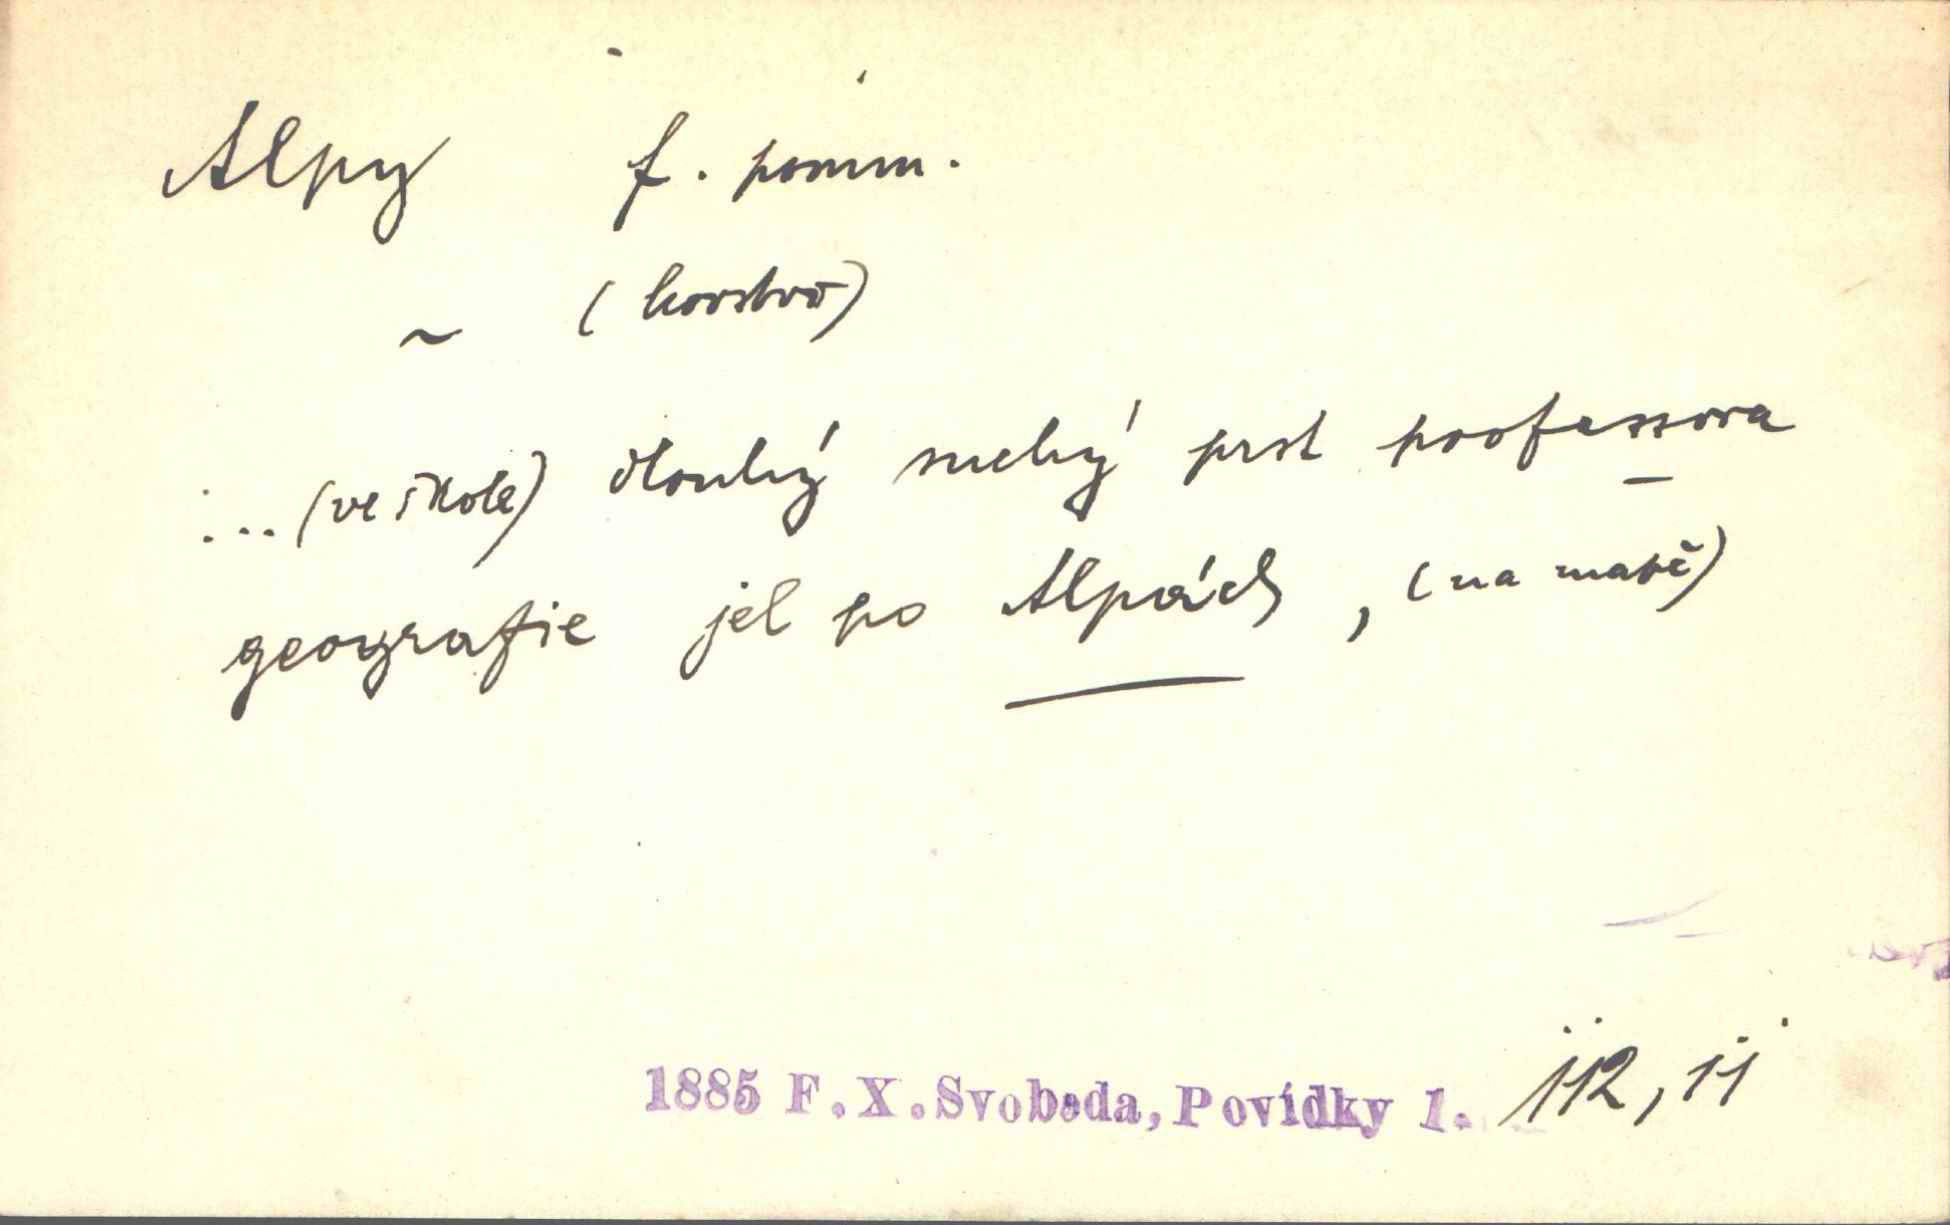 Alpy f. pomn.
~ (horstvo)
... (ve škole) dlouhý suchý prst professora
geografie jel po Alpách, (na mapě)
1885 F.X.Svoboda, Povídky 1. 112, 11